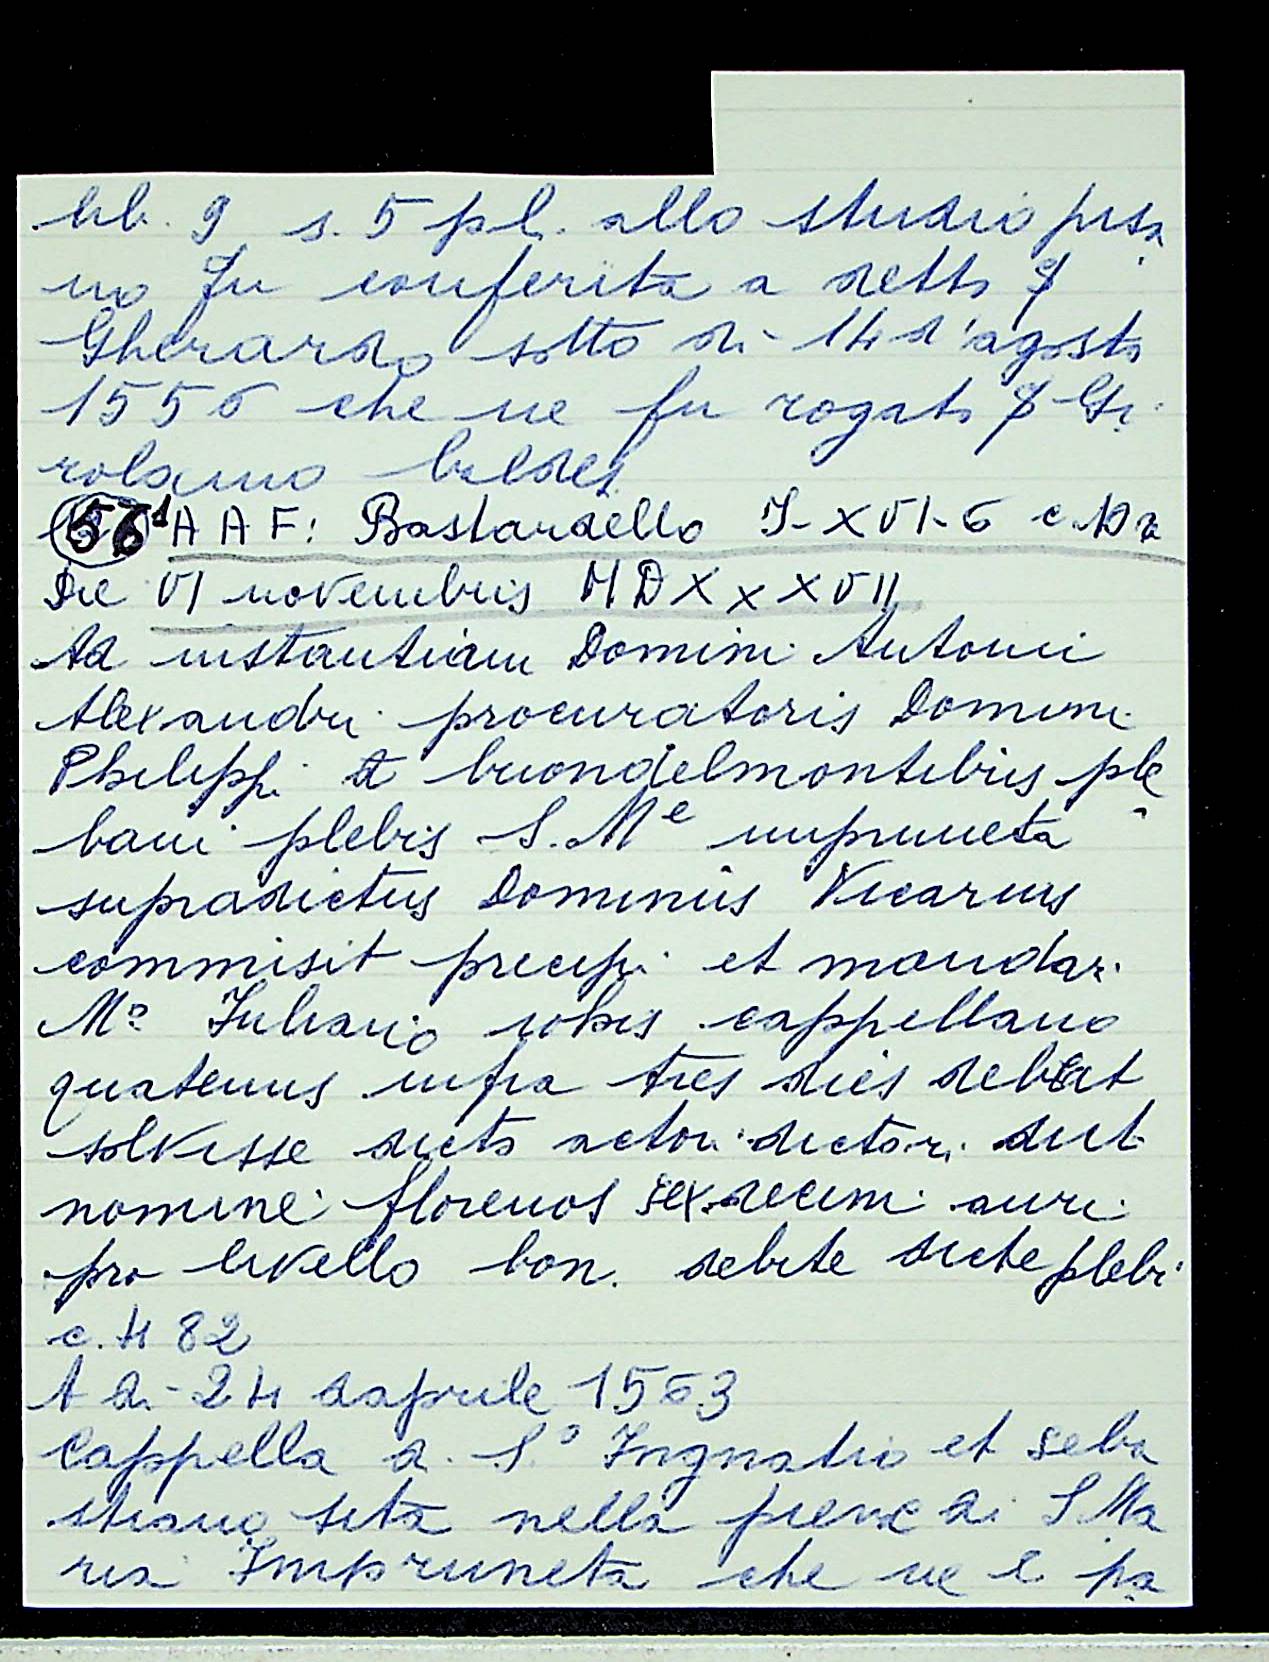 lib. 9 s. 5 pl. allo studio pisa
no fu conferita a detto
Gherardo sotto di 14 d'agosto
1556 che ne fu rogato Gi
rolamo
56 AAF: Bastardello I-XVI-6 c.
Die VI novembris MDXXXXVII
Ad instantiam Domini Antonii
Alexandri procuratoris Domini
Philippi de buondelmontibus ple
bani plebis S. Me impruneta
supradictus Dominus Vicarius
commisit precipi et mandari
Mo Iuliano cappellano
quatenus infra tres dies debeat
solvisse dicto actori dictori dict
nomine florenos sexdecim auri
pro livello bon. debite dicte plebi
c. 482
A di 24 daprile 1563
Cappella di So Ingnatio et Seba
stiano sita nella pieve di S Ma
ria Impruneta che ne è pa